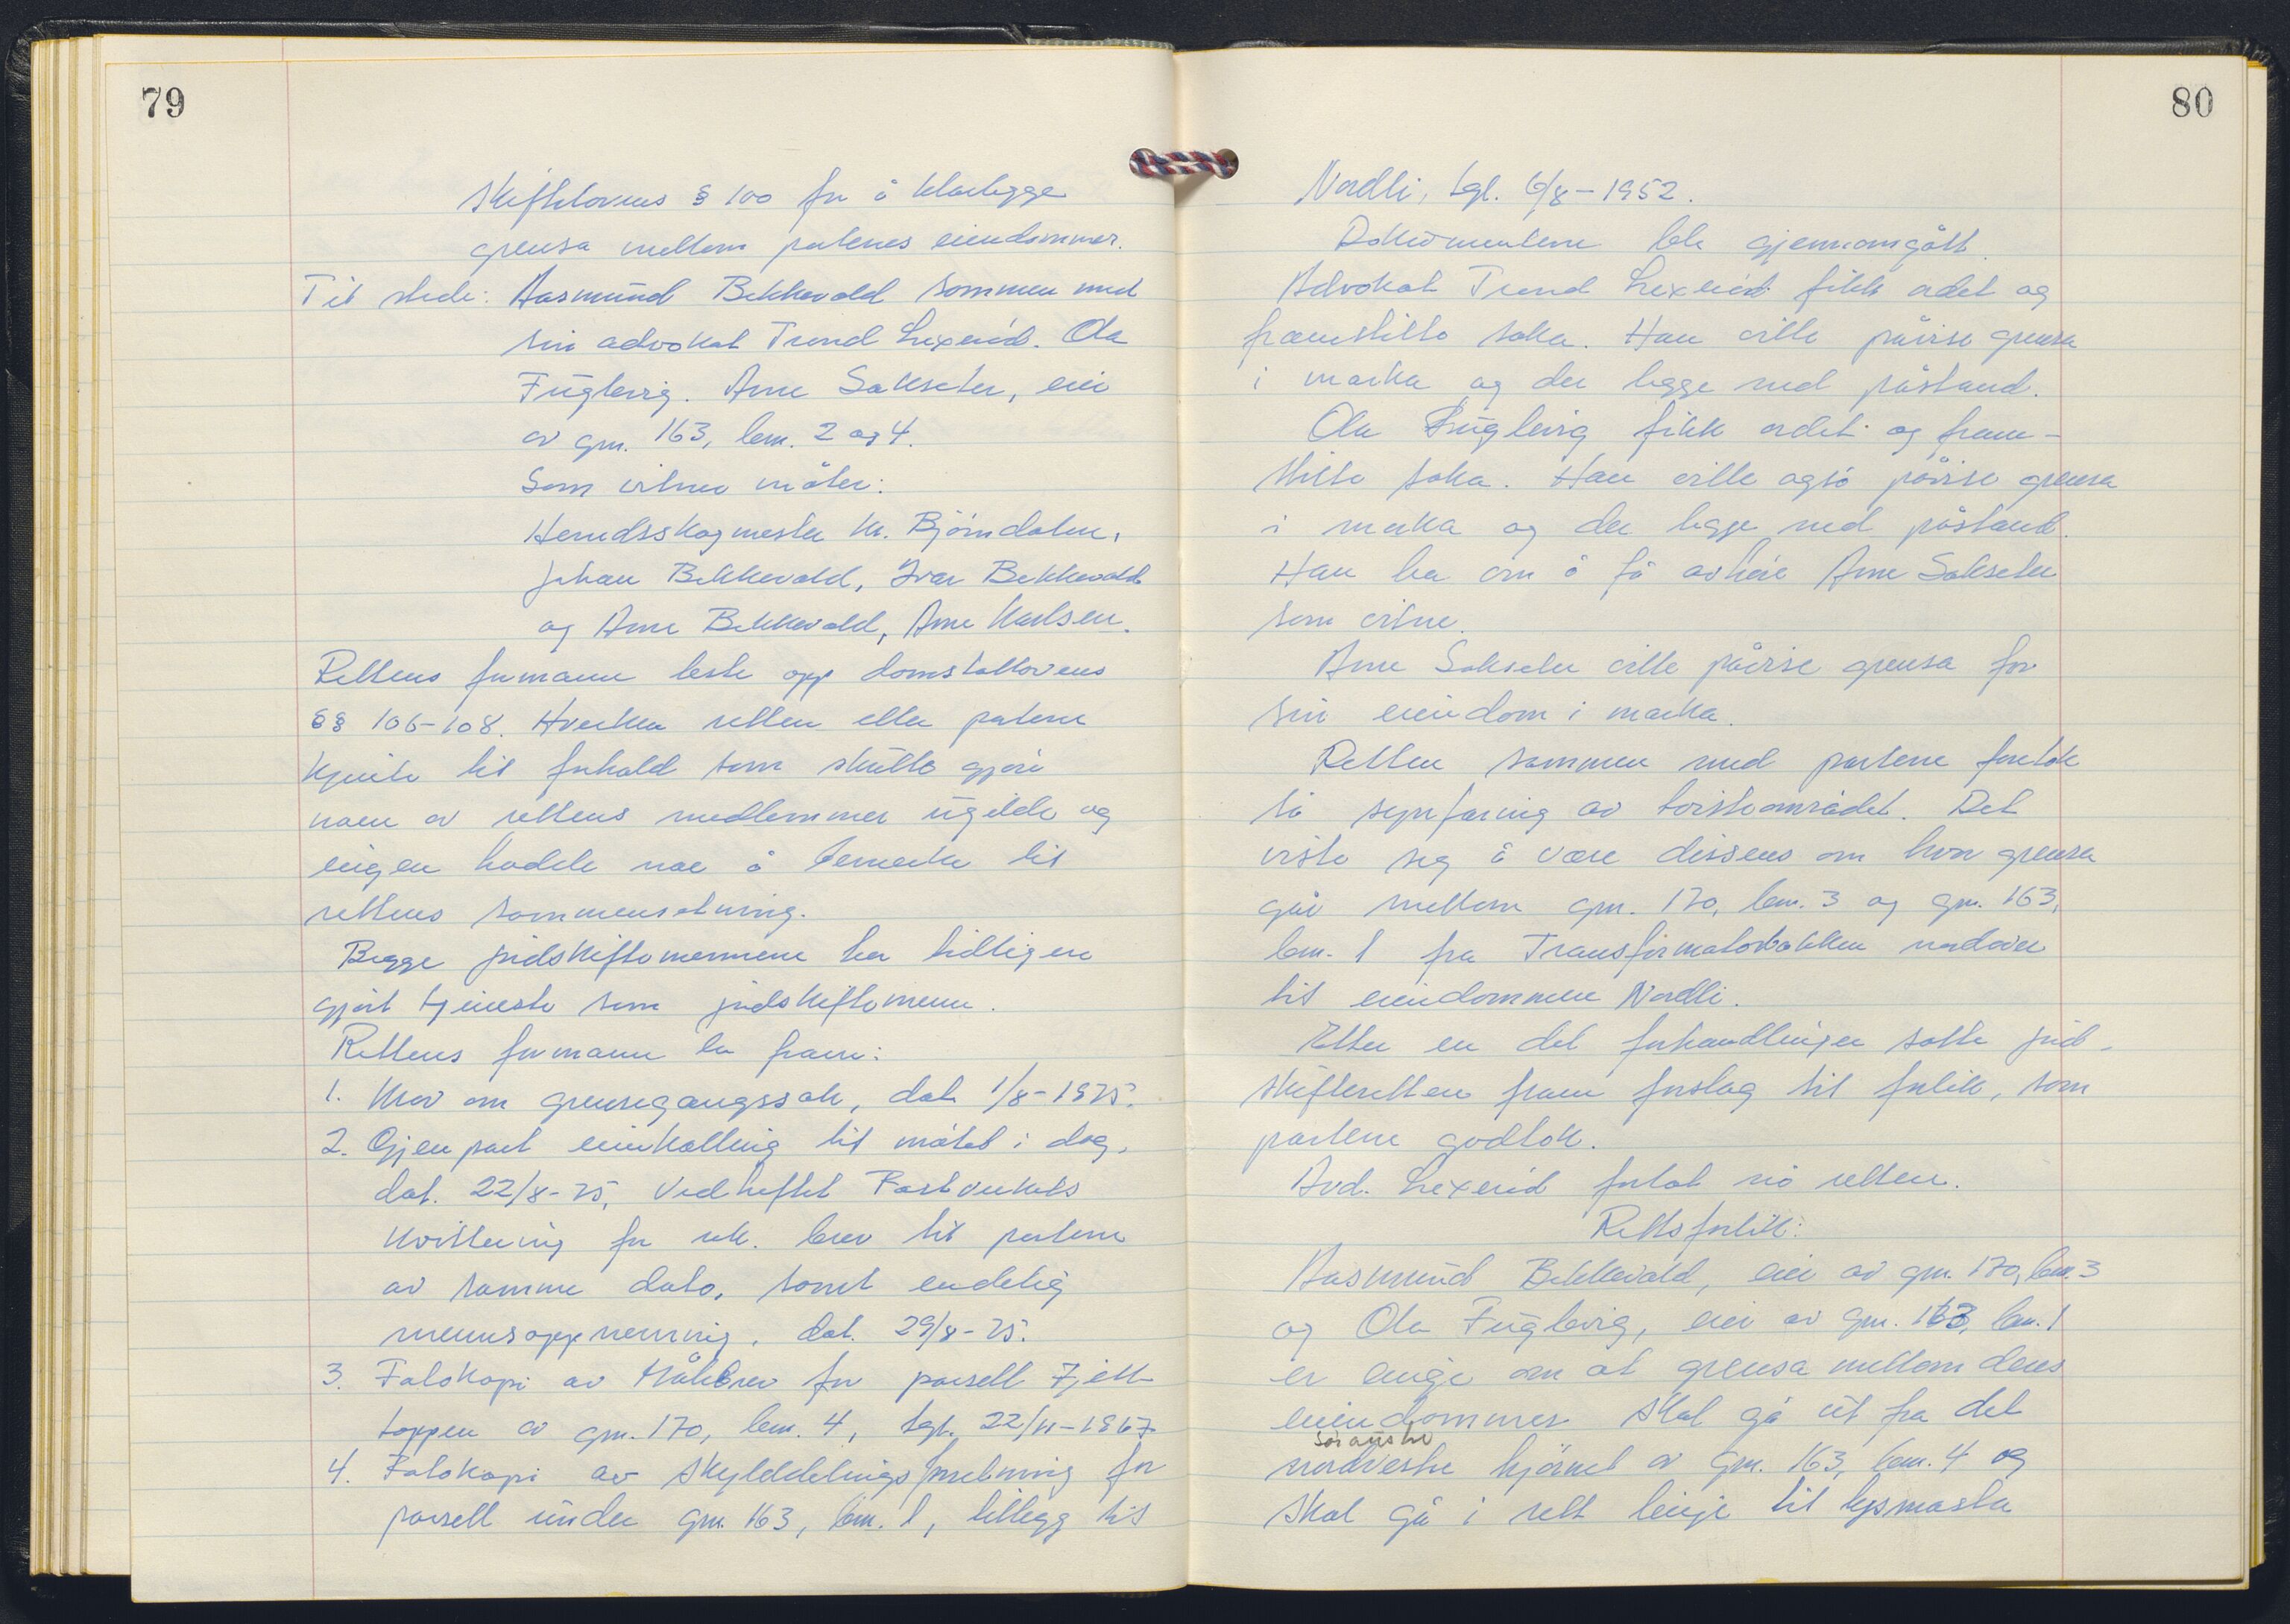 79
skiftelovens § 100 for å klarlegge
grensa mellom partenes eiendommer.
Til stede: Aasmund Bekkevold sammen med
sin advokat Trond Lexerød. Ola
Fuglevig. Arne Sakseter, eier
av gnr. 163, bnr. 2 og 4.
Som vitner möter:
Herredsskogmester Kr. Björndalen,
Johan Bekkevold, Ivar Bekkevold
og Arne Bekkevold, Arne Karlsen.
Rettens formann leste opp domstollovens
§§ 106-108. Hverken retten eller partene
kjente til forhold som skulle gjøre
noen av rettens medlemmer ugilde og
ingen hadde noe å bemerke til
rettens sammensetning.
Begge jordskiftemennene har tidligere
gjort tjeneste som jordskiftemenn.
Rettens formann la fram:
1. Krav om grensegangssak, dat. 1/8-1975.
2. Gjenpart innkalling til mötet i dag,
dat. 22/8-75, Vedheftet Postverkets
kvittering for rek. brev til partene
av samme dato, samt endelig
mennsoppnemning, dat. 29/8-75.
3. Fotokopi av Målebrev for parsell Fjell-
toppen av gnr. 170, bnr. 4, tgl. 22/11-1967
4. Fotokopi av Skylddelingsforretning for
parsell under gnr. 163, bnr. 1, tillegg til
80
Nordli, tgl. 6/8-1952.
Dokumentene ble gjennomgått.
Advokat Trond Lexerød fikk ordet og
framstilte saka. Han ville påvise grensa
i marka og der legge ned påstand.
Ola Fuglevig fikk ordet og fram-
stilte saka. Han ville også påvise grensa
i marka og der legge ned påstand.
Han ba om å få avhøre Arne Sakseter
som vitne.
Arne Sakseter ville påvise grensa for
sin eiendom i marka.
Retten sammen med partene foretok
så synfaring av tvisteområdet. Det
viste seg å være dissens om hvor grensa
går mellom gnr. 170, bnr. 3 og gnr. 163,
bnr. 1 fra Transformatorbakken nordover
til eiendommen Nordli.
Etter en del forhandlinger satte jord-
skifteretten fram forslag til forlik, som
partene godtok.
Avd. Lexerød forlot nå retten.
Rettsforlik:
Aasmund Bekkevold, eier av gnr. 170, bnr. 3
og Ola Fuglevig, eier av gnr. 163, bnr. 1
er enige om at grensa mellom deres
eiendommer skal gå ut fra det
søraustre
nordvestre hjörnet av gnr. 163, bnr. 4 og
skal gå i rett linje til lysmasta